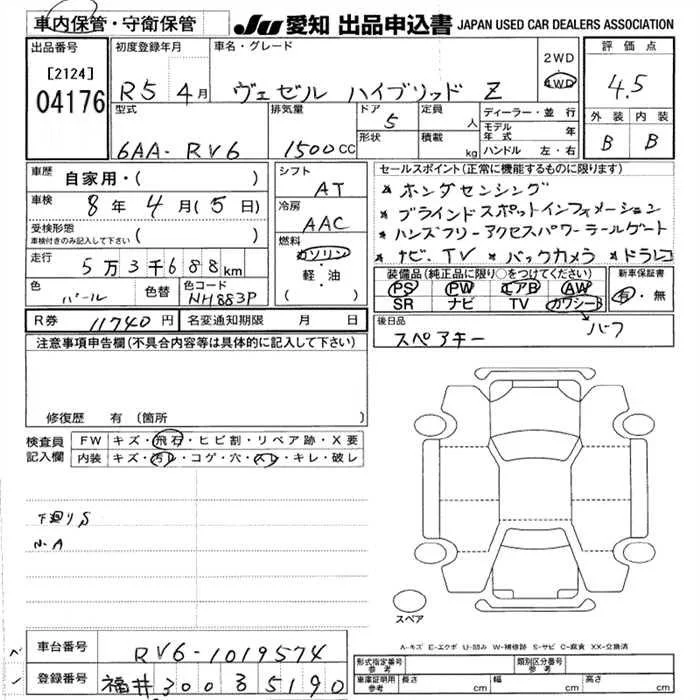 車内保管・守衛保管
JU 愛知 出品申込書 JAPAN USED CAR DEALERS ASSOCIATION
出品番号
[2124]
04176
初度登録年月
R5 4月
車名・グレード
ヴェゼル ハイブリッド Z
2WD
4WD
評価点
4.5
外装 内装
B B
型式
6AA-RV6
排気量
1500 CC
ドア 5
形状
定員 人
積載 kg
ディーラー・並行
モデル年式 年
ハンドル 左・右
車歴 自家用・( )
車検 8年 4月(5日)
受検形態
車検付きのみ記入して下さい ( )
走行 5万3千688km
色 パール 色替 色コード NH883P
シフト AT
冷房 AAC
燃料
ガソリン
・軽・油
( )
セールスポイント(正常に機能するものに限ります)
* ホンダセンシング
* ブラインドスポットインフォメーション
* ハンズフリーアクセスパワーテールゲート
* ナビ、TV * バックカメラ * ドラレコ
装備品(純正品に限り○をつけてください)
PS PW エアB AW
SR ナビ TV カワシート
ハーフ
新車保証書
有・無
R券 11740円 名変通知期限 月 日
後日品
スペアキー
注意事項申告欄(不具合内容等は具体的に記入して下さい)
修復歴 有(箇所 )
検査員記入欄
FW キズ・飛石・ヒビ割・リペア跡・X要
内装 キズ・汚レ・コゲ・穴・スレ・キレ・破レ
下廻りS
スペア
A-キズ E-エクボ U-凹み W-補修跡 S-サビ C-腐食 XX-交換済
車台番号 RV6-1019574
登録番号 福井 300 る 5190
形式指定番号 参考
類別区分番号 参考
車庫証明用 参考 長さ cm 幅 cm 高さ cm